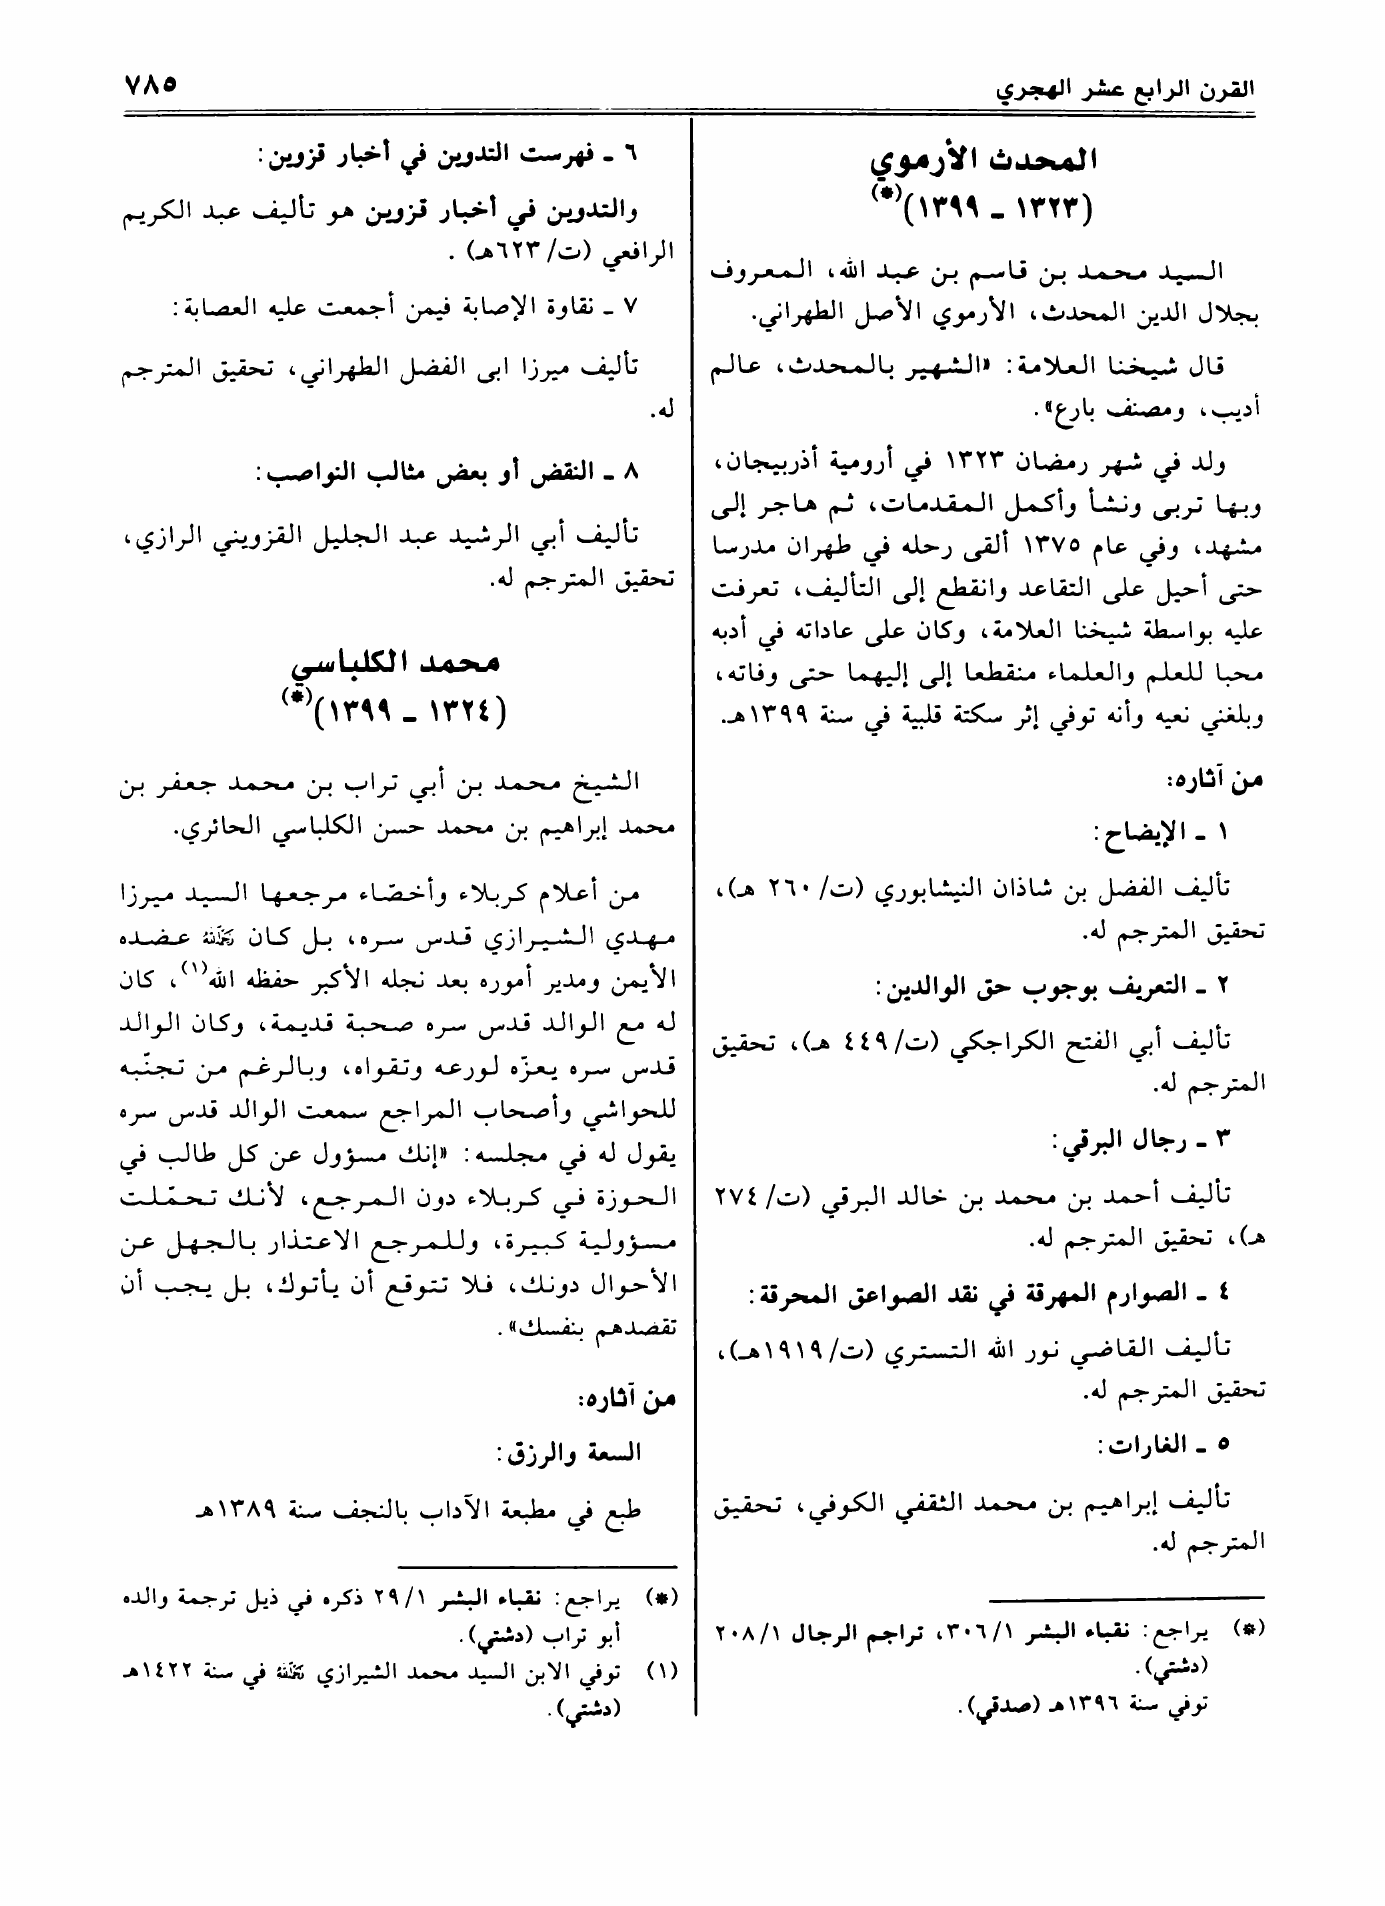 القرن الرابع عشر الهجري
٧٨٥
المحدث الأرموي
(١٣٢٣ ـ ١٣٩٩)(*)
السيد محمد بن قاسم بن عبد الله، المعروف
بجلال الدين المحدث، الأرموي الأصل الطهراني.
قال شيخنا العلامة: «الشهير بالمحدث، عالم
أديب، ومصنف بارع».
ولد في شهر رمضان ١٣٢٣ في أرومية أذربيجان،
وبها تربى ونشأ وأكمل المقدمات، ثم هاجر إلى
مشهد، وفي عام ١٣٧٥ ألقى رحله في طهران مدرسا
حتى أحيل على التقاعد وانقطع إلى التأليف، تعرفت
عليه بواسطة شيخنا العلامة، وكان على عاداته في أدبه
محبا للعلم والعلماء منقطعا إلى إليهما حتى وفاته،
وبلغني نعيه وأنه توفي إثر سكتة قلبية في سنة ١٣٩٩هـ.
من آثاره:
١ ـ الإيضاح:
تأليف الفضل بن شاذان النيشابوري (ت/ ٢٦٠ هـ)،
تحقيق المترجم له.
٢ ـ التعريف بوجوب حق الوالدين:
تأليف أبي الفتح الكراجكي (ت/ ٤٤٩ هـ)، تحقيق
المترجم له.
٣ ـ رجال البرقي:
تأليف أحمد بن محمد بن خالد البرقي (ت/ ٢٧٤
هـ)، تحقيق المترجم له.
٤ ـ الصوارم المهرقة في نقد الصواعق المحرقة:
تأليف القاضي نور الله التستري (ت/ ١٩١٩هـ)،
تحقيق المترجم له.
٥ ـ الغارات:
تأليف إبراهيم بن محمد الثقفي الكوفي، تحقيق
المترجم له.
(*) يراجع: نقباء البشر ٣٠٦/١، تراجم الرجال ٢٠٨/١
(دشتي).
توفي سنة ١٣٩٦هـ (صدقي).
٦ ـ فهرست التدوين في أخبار قزوين:
والتدوين في أخبار قزوين هو تأليف عبد الكريم
الرافعي (ت/ ٦٢٣هـ) .
٧ ـ نقاوة الإصابة فيمن أجمعت عليه العصابة:
تأليف ميرزا ابى الفضل الطهراني، تحقيق المترجم
له.
٨ ـ النقض أو بعض مثالب النواصب:
تأليف أبي الرشيد عبد الجليل القزويني الرازي،
تحقيق المترجم له.
محمد الكلباسي
(١٣٢٤ ـ ١٣٩٩)(*)
الشيخ محمد بن أبي تراب بن محمد جعفر بن
محمد إبراهيم بن محمد حسن الكلباسي الحائري.
من أعلام كربلاء وأخصّاء مرجعها السيد ميرزا
مهدي الشيرازي قدس سره، بل كان رحمه الله عضده
الأيمن ومدير أموره بعد نجله الأكبر حفظه الله(١)، كان
له مع الوالد قدس سره صحبة قديمة، وكان الوالد
قدس سره يعزّه لورعه وتقواه، وبالرغم من تجنّبه
للحواشي وأصحاب المراجع سمعت الوالد قدس سره
يقول له في مجلسه: «إنك مسؤول عن كل طالب في
الحوزة في كربلاء دون المرجع، لأنك تحمّلت
مسؤولية كبيرة، وللمرجع الاعتذار بالجهل عن
الأحوال دونك، فلا تتوقع أن يأتوك، بل يجب أن
تقصدهم بنفسك».
من آثاره:
السعة والرزق:
طبع في مطبعة الآداب بالنجف سنة ١٣٨٩هـ
(*) يراجع: نقباء البشر ٢٩/١ ذكره في ذيل ترجمة والده
أبو تراب (دشتي).
(١) توفي الابن السيد محمد الشيرازي رحمه الله في سنة ١٤٢٢هـ
(دشتي).